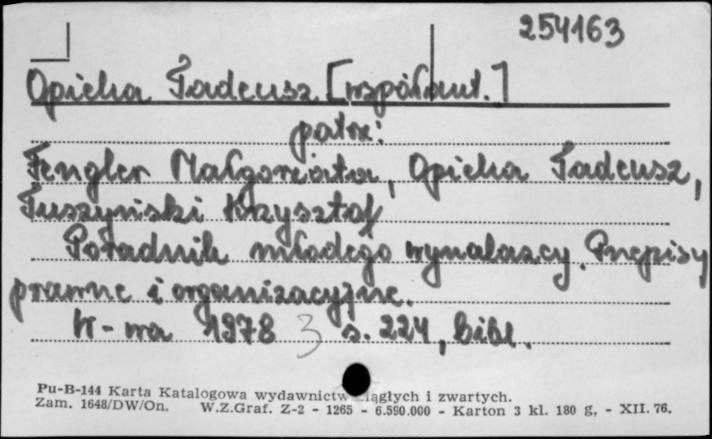 254163
Opieka Tadeusz [współaut.]
patrz:
Fengler Małgorzata, Opieka Tadeusz,
Tuszyński Krzysztof
Poradnik młodego wynalazcy. Przepisy
prawne i organizacyjne.
W-wa 1978 3 s. 224, bibl.
Pu-B-144 Karta Katalogowa wydawnictw ciągłych i zwartych.
Zam. 1648/DW/On. W.Z.Graf. Z-2 - 1265 - 6.590.000 - Karton 3 kl. 180 g, - XII. 76.